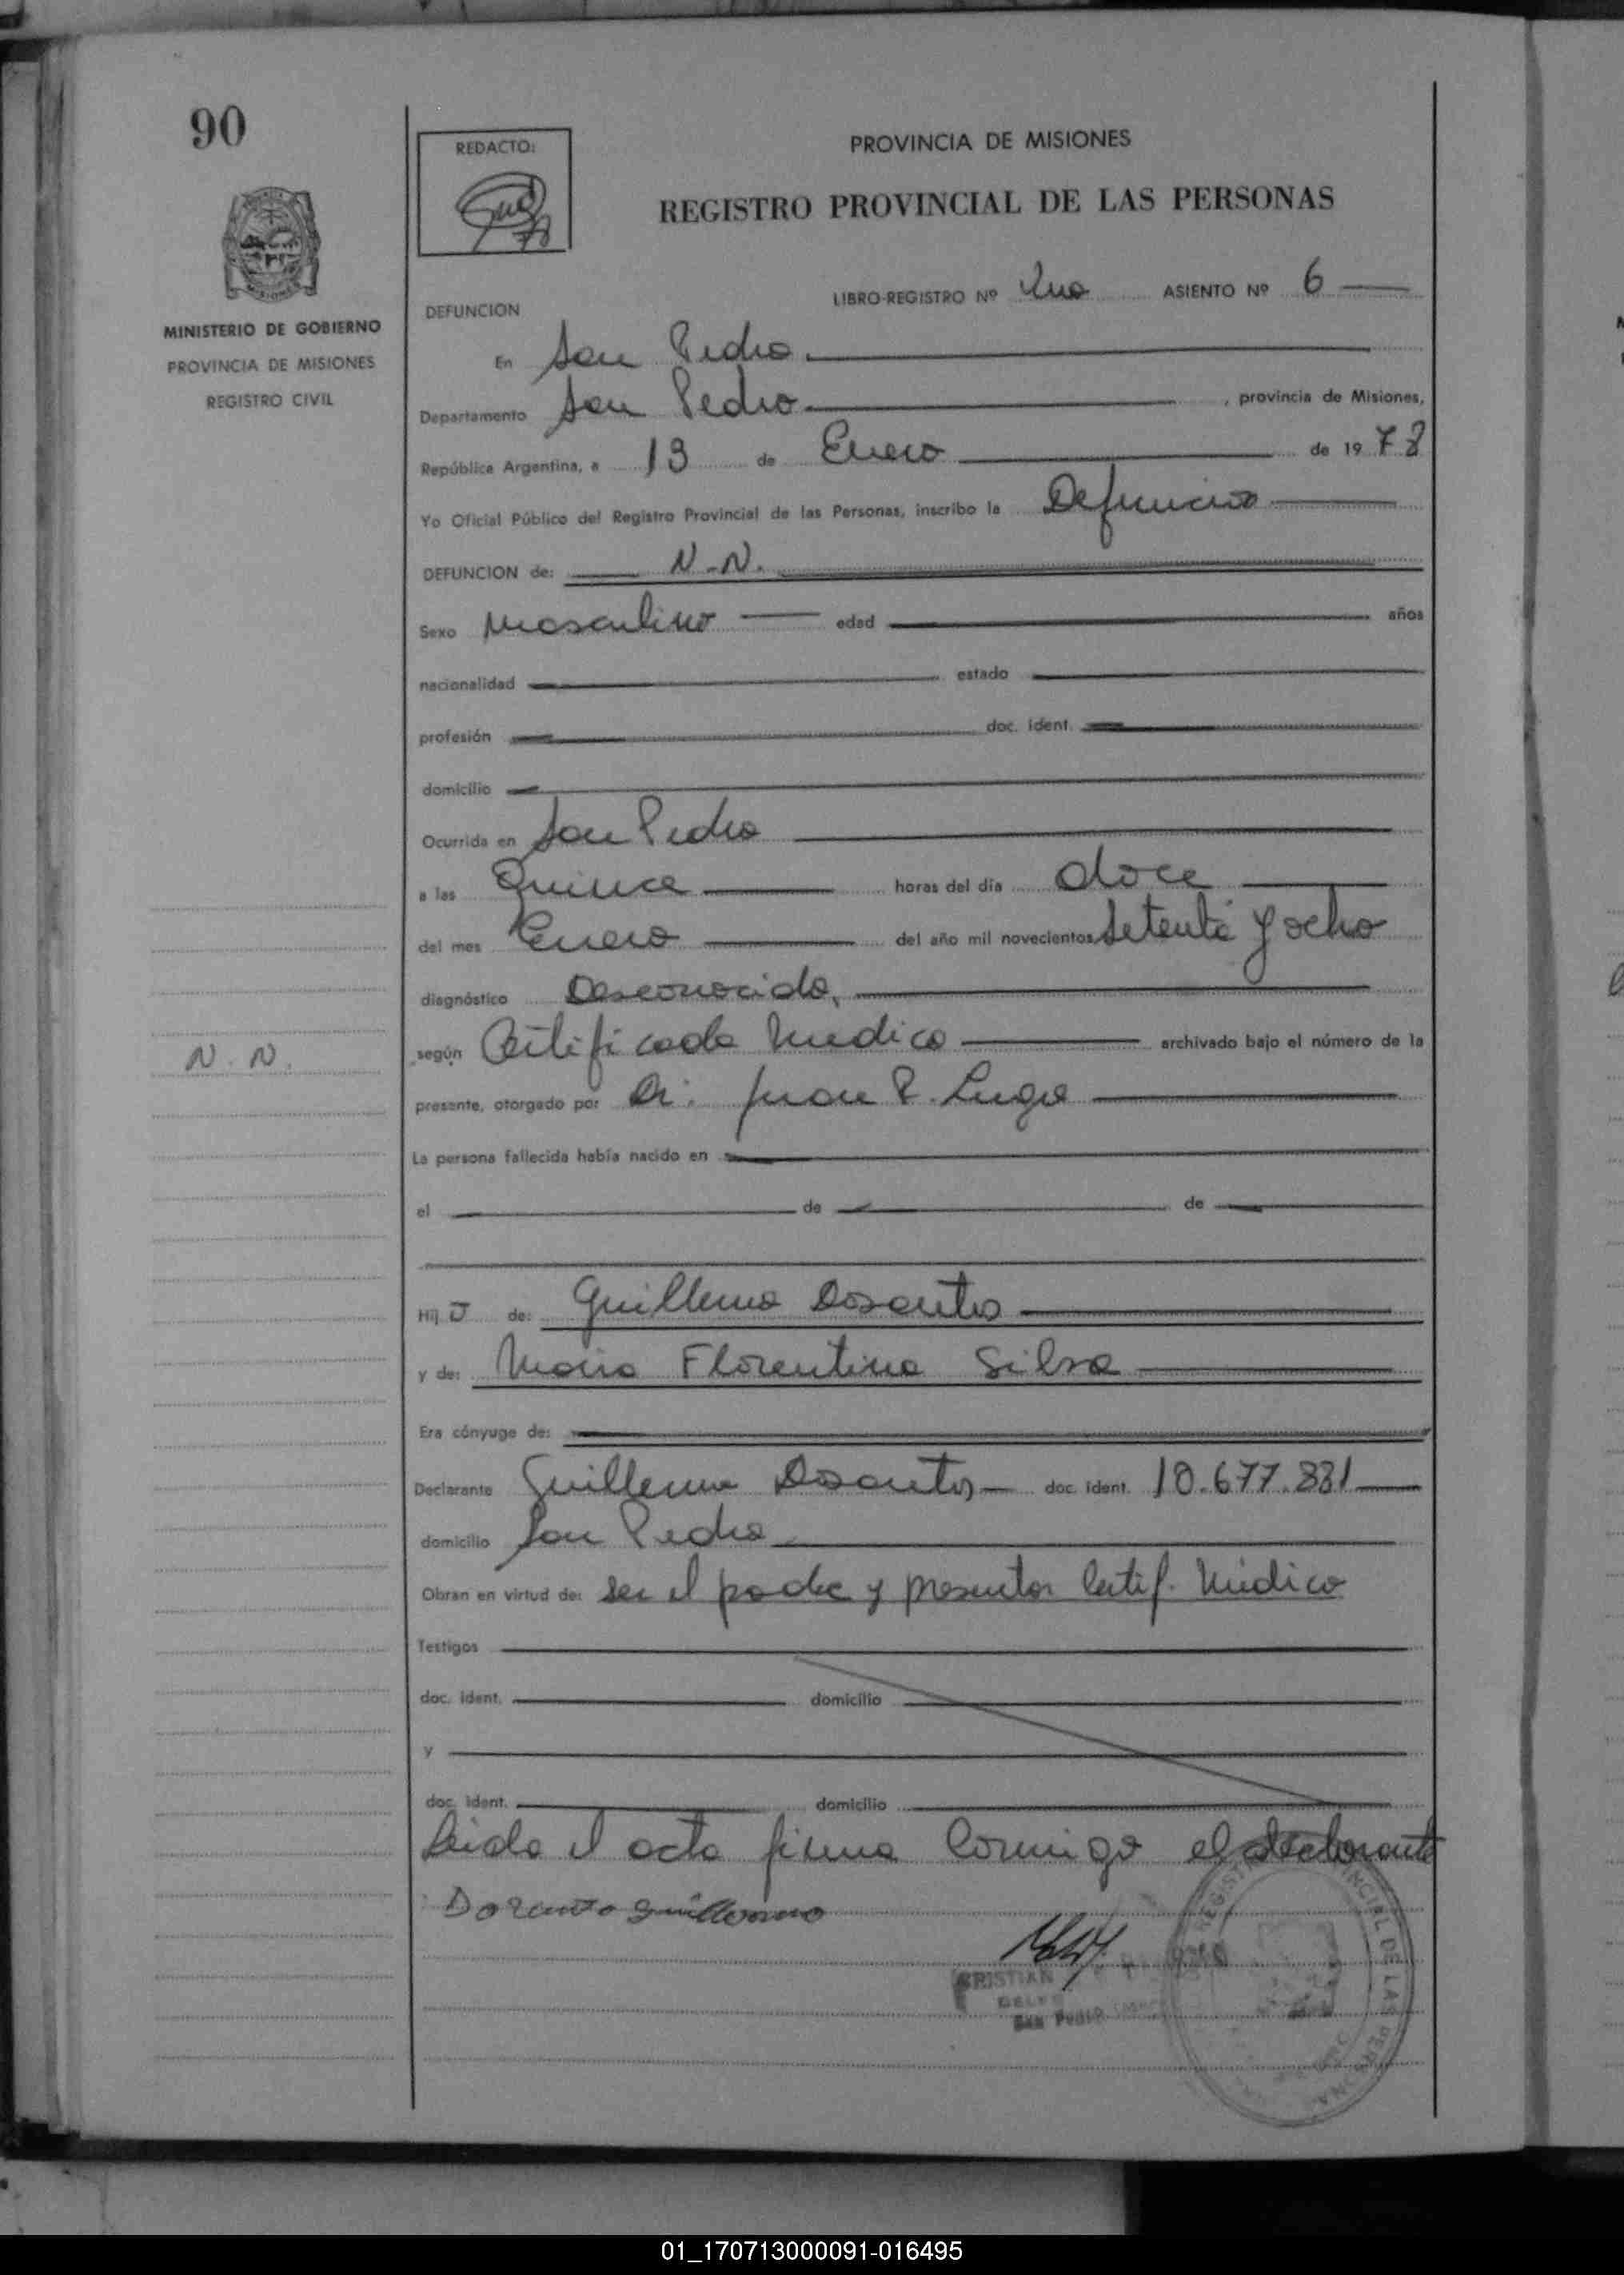 90
REDACTO:
PROVINCIA DE MISIONES
REGISTRO PROVINCIAL DE LAS PERSONAS
MINISTERIO DE GOBIERNO
PROVINCIA DE MISIONES
REGISTRO CIVIL
LIBRO-REGISTRO Nº Uno ASIENTO Nº 6
DEFUNCION
En San Pedro
Departamento San Pedro, provincia de Misiones,
República Argentina, a 13 de Enero de 1978
Yo Oficial Público del Registro Provincial de las Personas, inscribo la Defuncion
DEFUNCION de: N.N.
Sexo Masculino edad años
nacionalidad estado
profesión doc. ident.
domicilio
Ocurrida en San Pedro
a las Quince horas del día doce
del mes Enero del año mil novecientos Setenta y ocho
diagnóstico Desconocido,
N. N.
según Certificado Medico archivado bajo el número de la
presente, otorgado por Dr. Juan R. Lugo
La persona fallecida había nacido en
el de de
Hij o de: Guillermo Dosantos
y de: Maria Florentina Silva
Era cónyuge de:
Declarante Guillermo Dosantos doc. ident. 10.677.881
domicilio San Pedro
Obran en virtud de: ser el padre y presentar Certif. Médico
Testigos
doc. ident. domicilio
y
doc. ident. domicilio
Leida el acta firma Conmigo el declarante
Dozanto Guillermo
CRISTIAN
SAN PEDRO
01_170713000091-016495